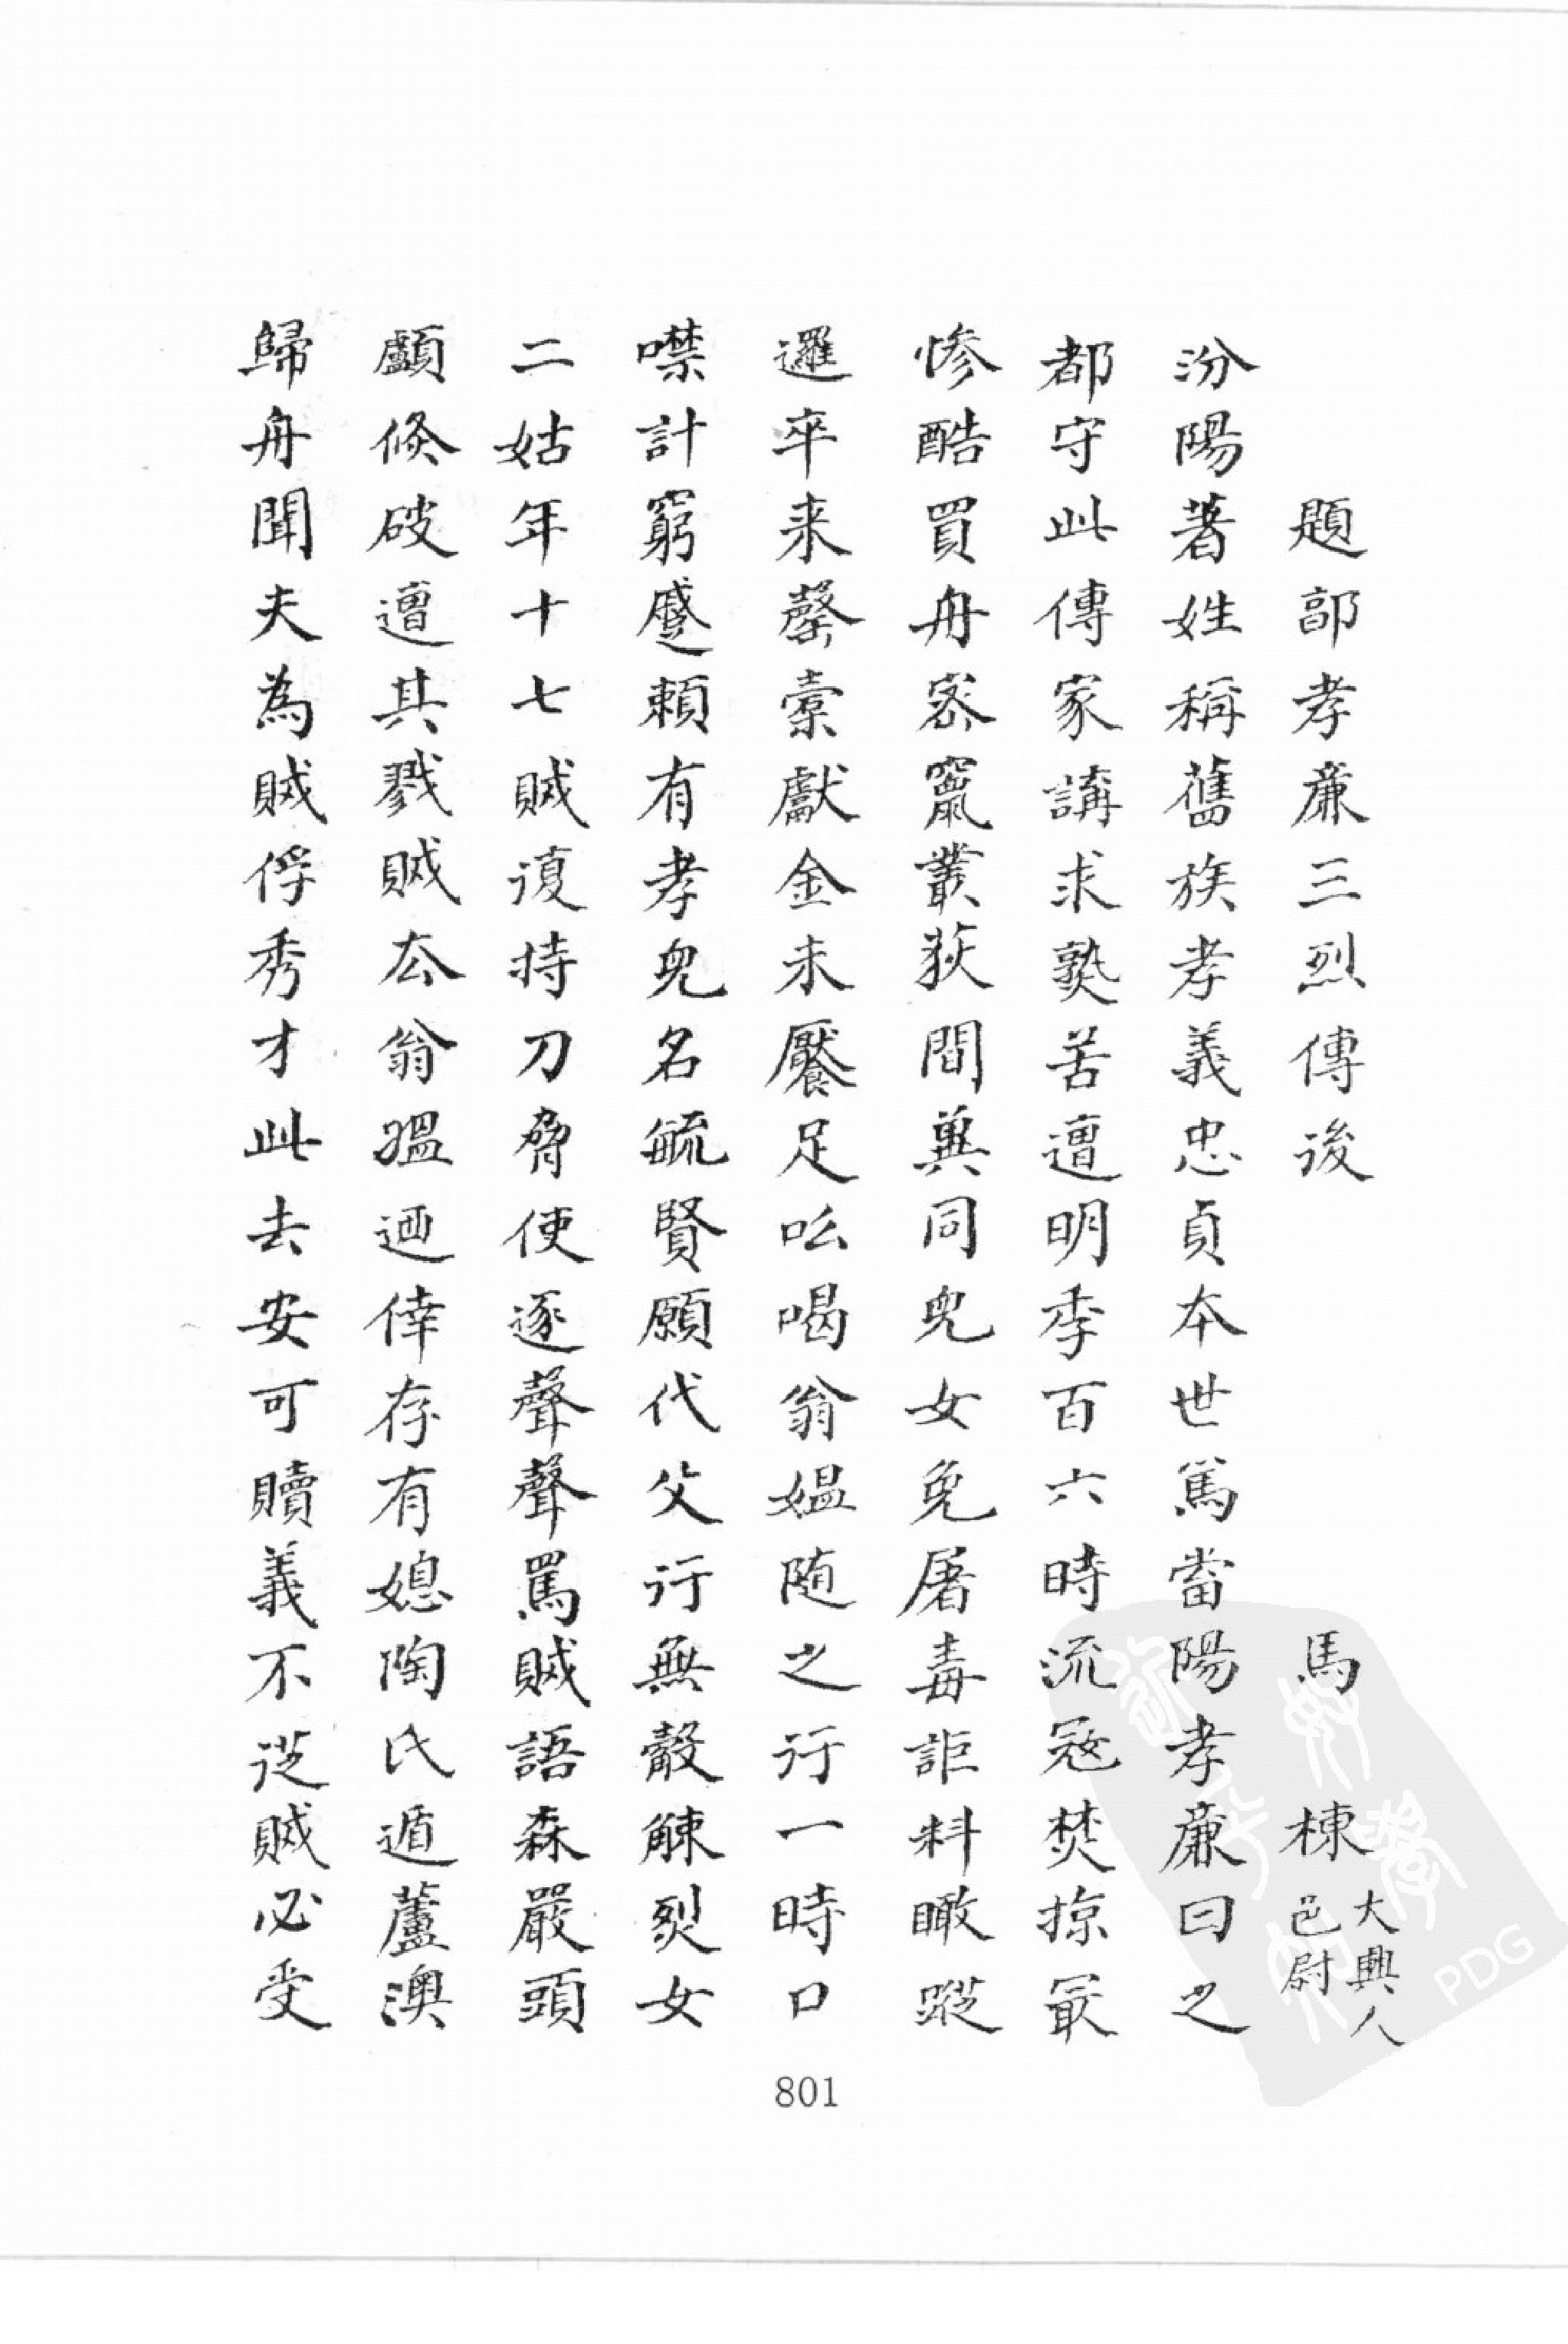 題郭孝廉三烈傳後　馬棟　大興人邑尉
汾陽著姓稱舊族孝義忠貞本世篤當陽孝廉曰之
都守此傳家講求熟苦遭明季百六時流冦焚掠冣
惨酷買舟宻竄叢荻間兾同兒女免屠毒詎料瞰蹤
邏卒来罄橐獻金未饜足吆喝翁媪随之行一時口
噤計窮蹙賴有孝兒名毓賢願代父行無觳觫烈女
二姑年十七賊復持刀脅使逐聲聲罵賊語森嚴頭
顱倐破遭其戮賊厺翁媪迺倖存有媳陶氏遁蘆澳
歸舟聞夫為賊俘秀才此去安可贖義不従賊必受
801
PDG